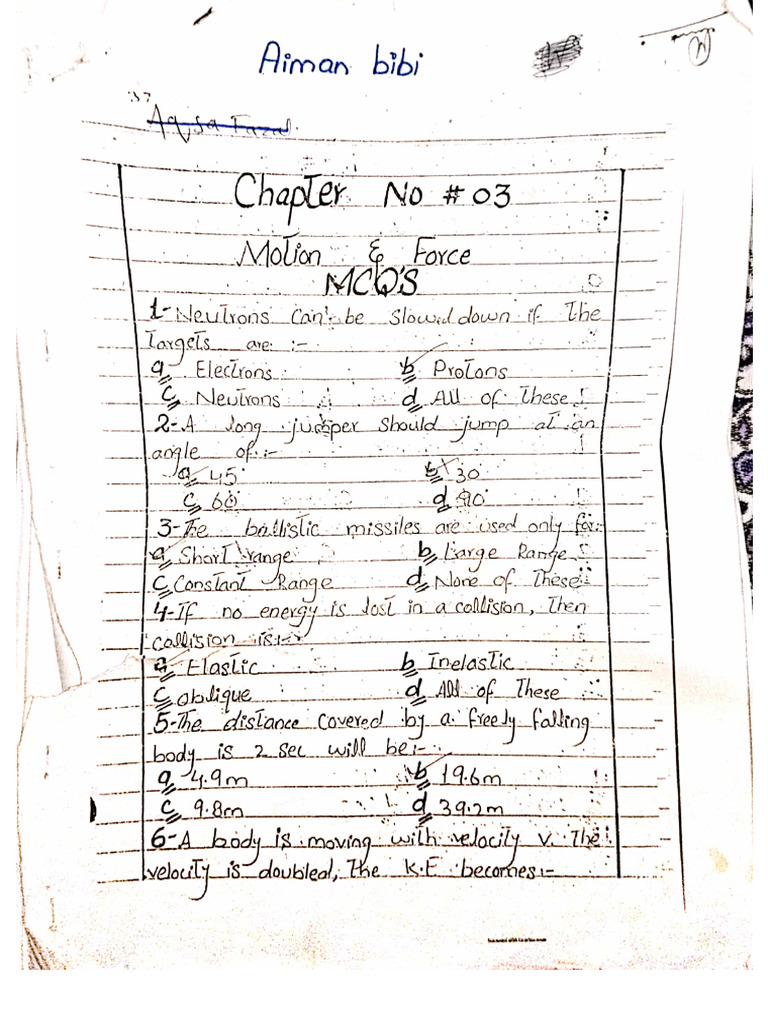 Aiman bibi
Aqsa Fazal.
Chapter No # 03
Motion & Force
MCQ'S
1- Neutrons Can be Slowed down if the
targets are :-
a Electrons b Protons
c Neutrons d All of These
2- A long jumper should jump at an
angle of :-
a 45° b 30
c 60 d 90°
3- The ballistic missiles are used only for:
a Short range b Large Range
c Constant Range d None of These
4- If no energy is lost in a collision, then
collision is:-
a Elastic b Inelastic
c oblique d All of These
5- The distance covered by a freely falling
body is 2 sec will be:-
a 4.9m b 19.6m
c 9.8m d 39.2m
6- A body is moving with velocity v. The
velocity is doubled, the K.E becomes:-